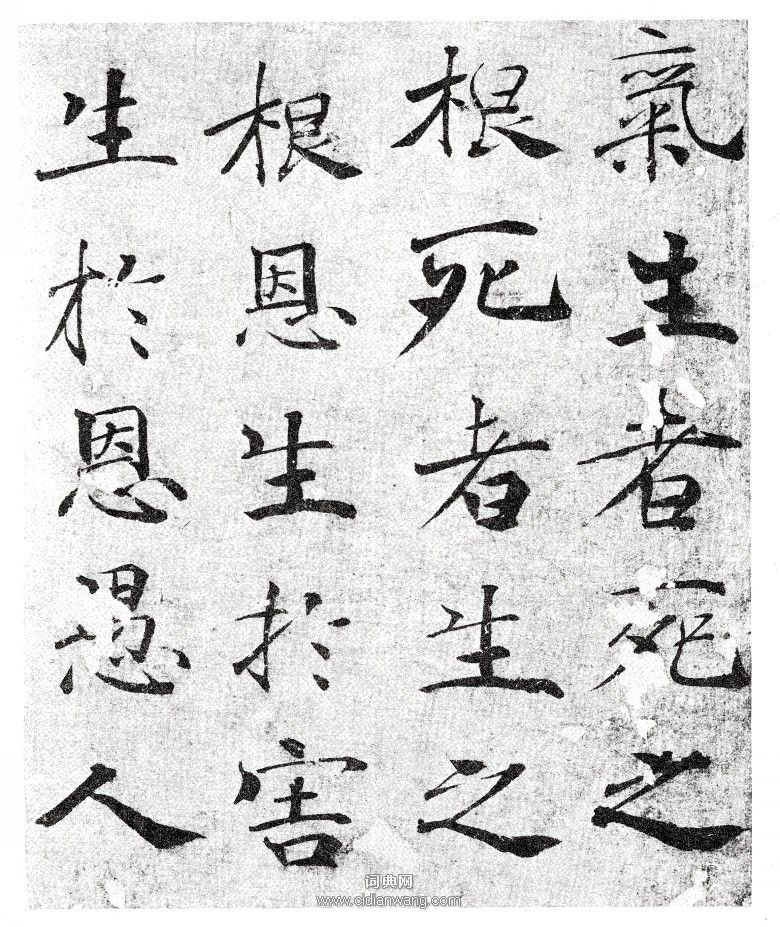 氣生者死之
根死者生之
根恩生於害
生於恩愚人
词典网
www.cidianwang.com